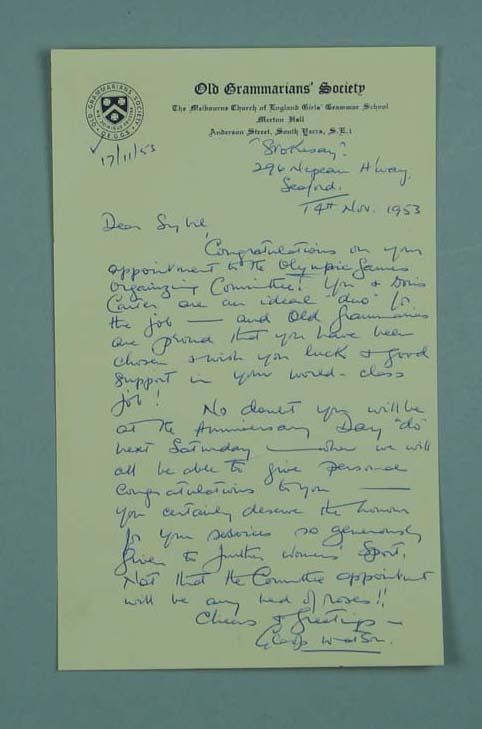 OLD GRAMMARIANS SOCIETY
Old Grammarians' Society
The Melbourne Church of England Girls' Grammar School
Merton Hall
Anderson Street, South Yarra, S.E.1
17/11/53
"Stokesay".
296 Nepean H'way.
Seaford.
14th Nov. 1953
Dear Sybil,
Congratulations on your
appointment to the Olympic Games
Organizing Committee! You & Doris
Carter are an ideal "duo" for
the job — and Old Grammarians
are proud that you have been
chosen & wish you luck & good
support in your world-class
job!
No doubt you will be
at the Anniversary Day "do"
next Saturday — when we will
all be able to give personal
congratulations to you —
you certainly deserve the honour
for your services so generously
given to further women's sport.
Not that the Committee appointment
will be any bed of roses!!
Cheers & Greetings —
Watson.